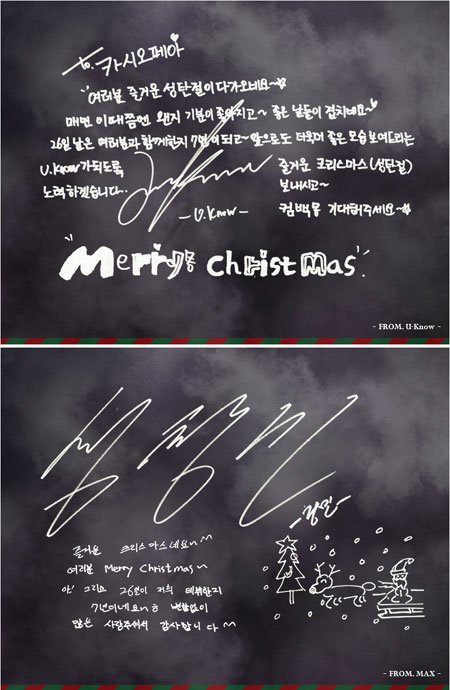 to. 카시오페아
여러분 즐거운 성탄절이 다가오네요~
매번 이때쯤엔 왠지 기분이 좋아지고~ 좋은 날들이 겹치네요~
26일 날은 여러분과 함께한지 7년이 되고~ 앞으로도 더욱더 좋은 모습 보여드리는
U.Know가 되도록
노력하겠습니다..
즐거운 크리스마스(성탄절)
보내시고~
컴백도 기대해주세요~
-U.Know-
"Merry christmas"
- FROM. U-Know -
심창민
-창민-
즐거운 크리스마스네요~^^
여러분 Merry Christmas~
아! 그리고 26일이 저희 데뷔한지
7년이네요ㅎ 변함없이
많은 사랑주셔서 감사합니다^^
- FROM. MAX -